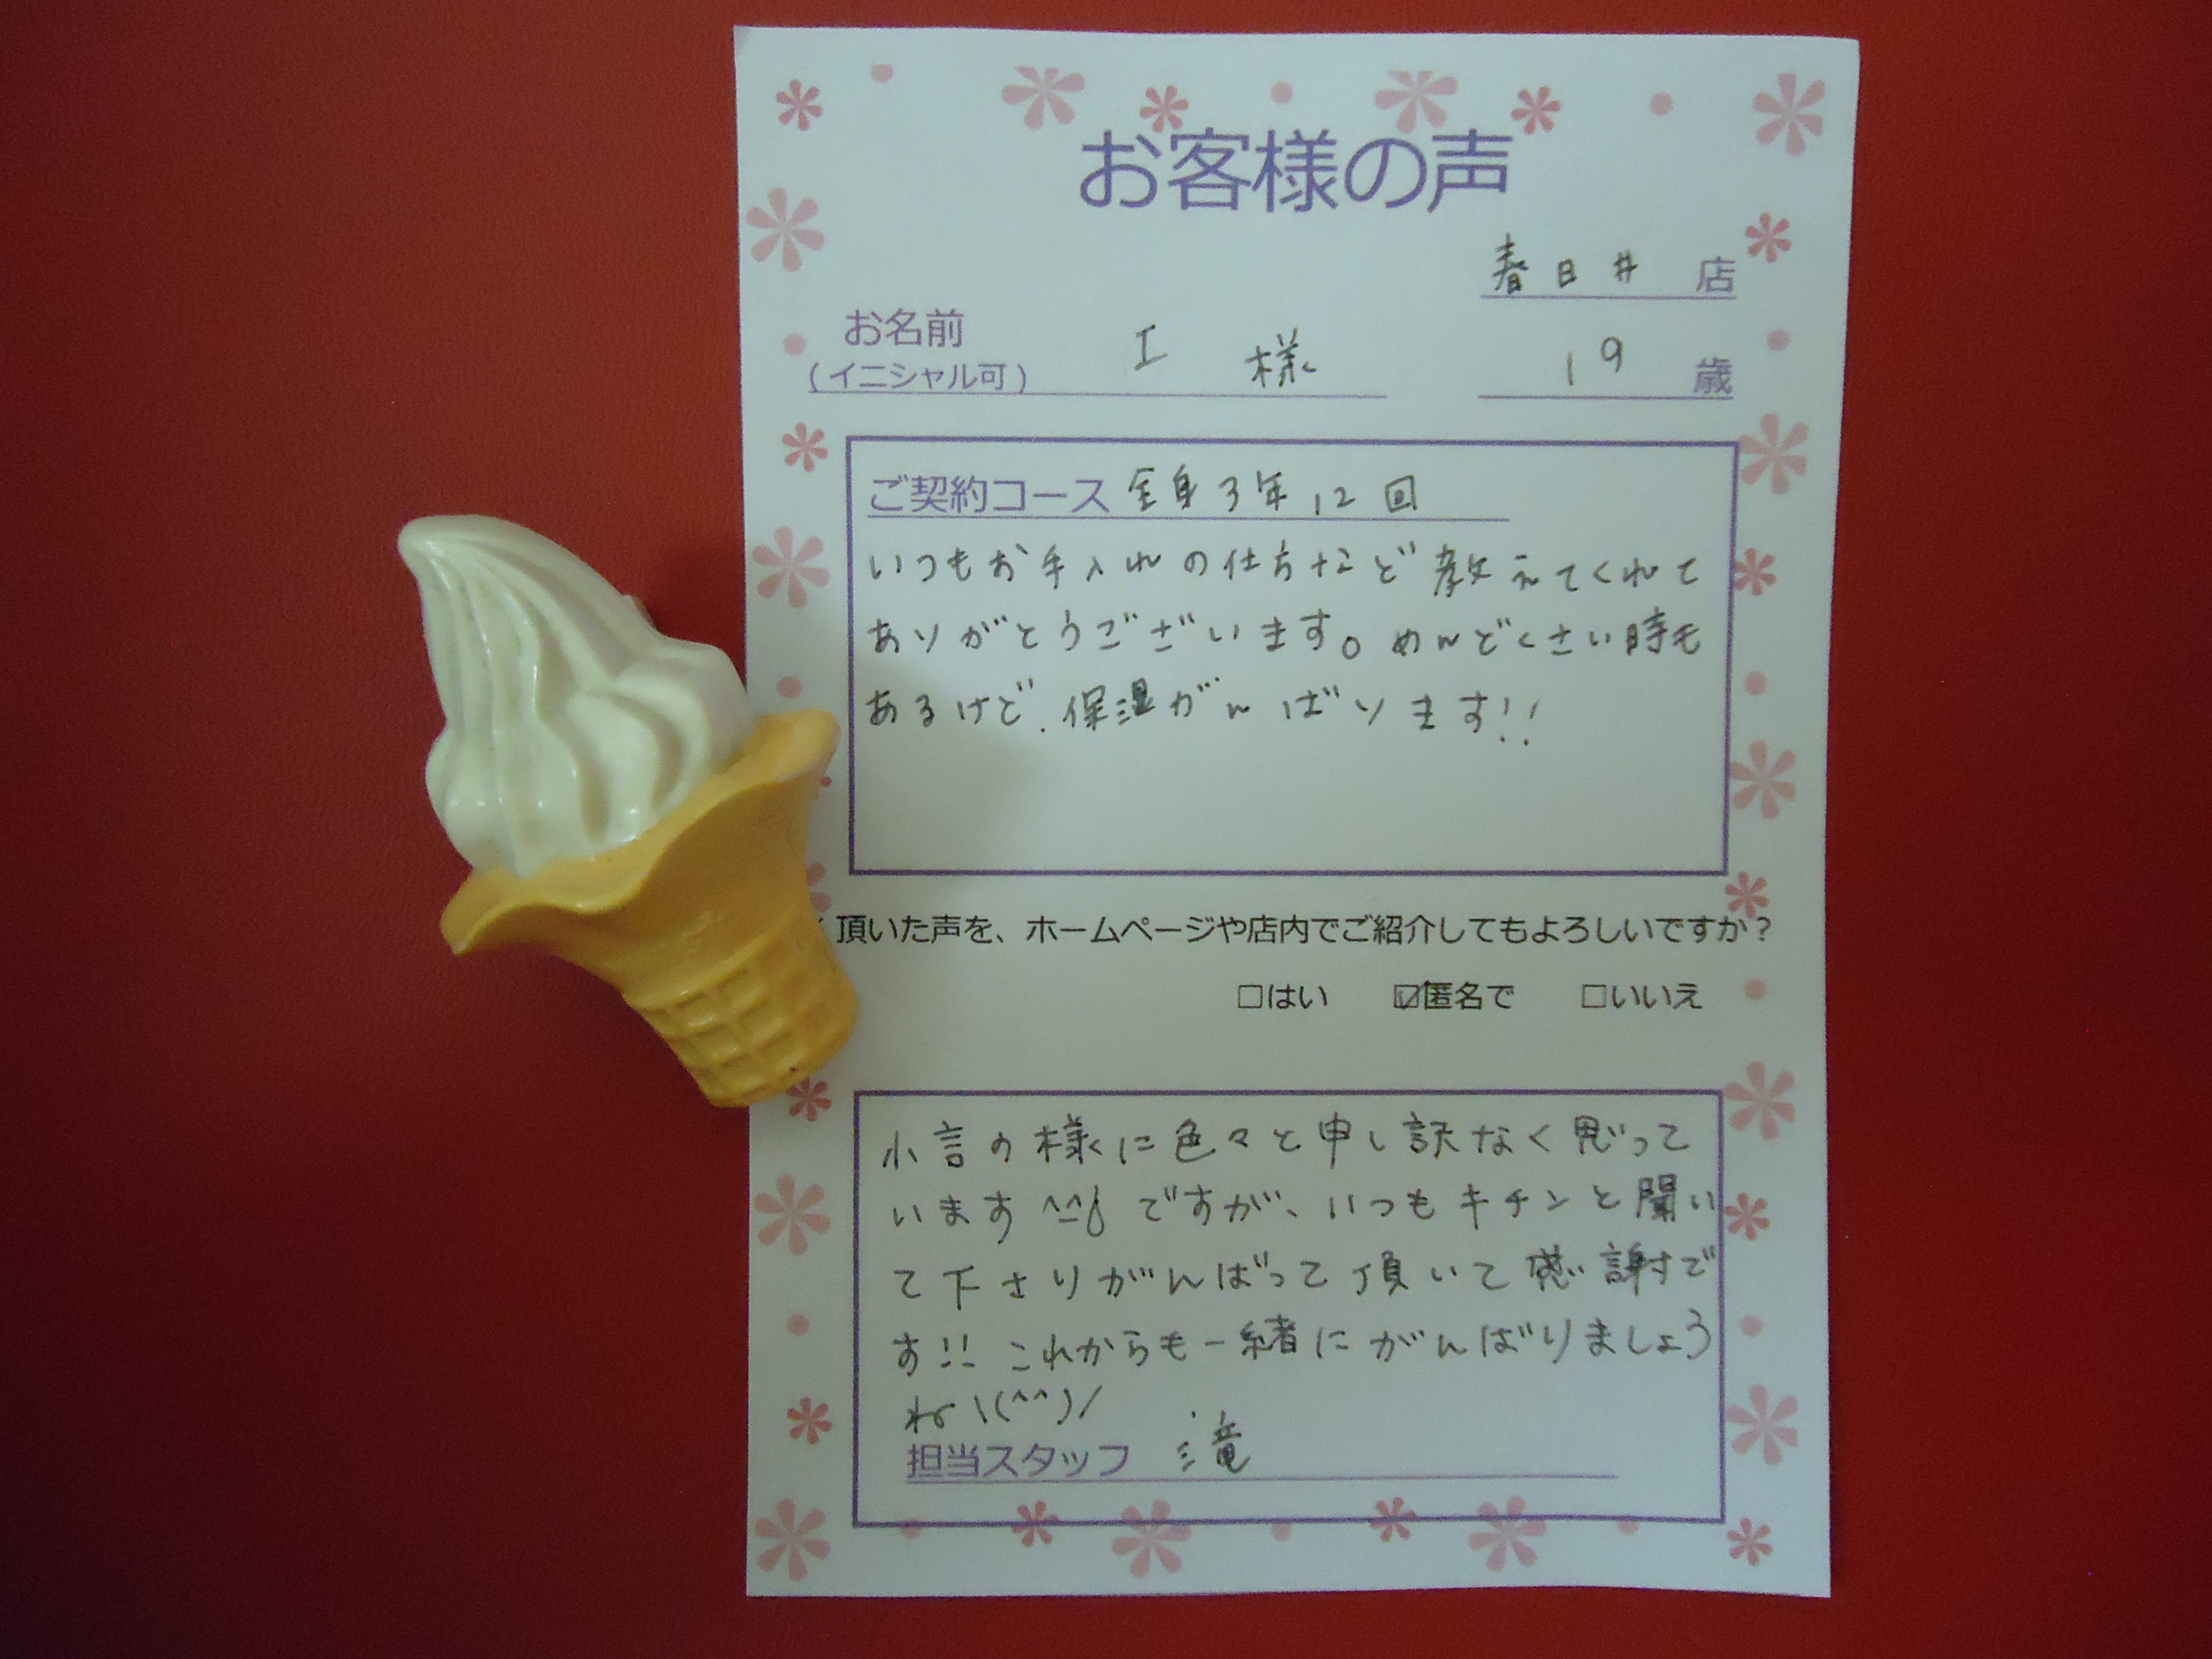 お客様の声
春日井 店
お名前
(イニシャル可) I 様 19 歳
ご契約コース 全身3年12回
いつもお手入れの仕方など教えてくれて
ありがとうございます。めんどくさい時も
あるけど、保湿がんばります!!
頂いた声を、ホームページや店内でご紹介してもよろしいですか?
□はい ☑匿名で □いいえ
小言の様に色々と申し訳なく思って
います^^; ですが、いつもキチンと聞い
て下さりがんばって頂いて感謝で
す!! これからも一緒にがんばりましょう
ね\(^^)/
担当スタッフ 滝